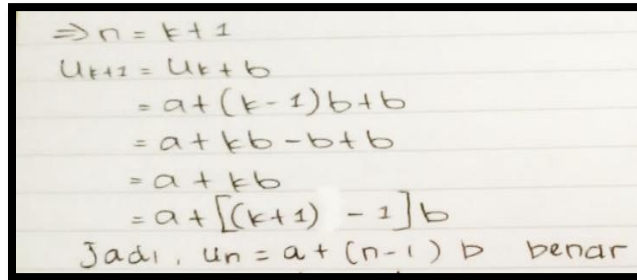 ⇒ n = k+1
U_{k+1} = U_k + b
= a + (k-1)b + b
= a + kb - b + b
= a + kb
= a + [(k+1) - 1]b
Jadi, un = a + (n-1) b benar